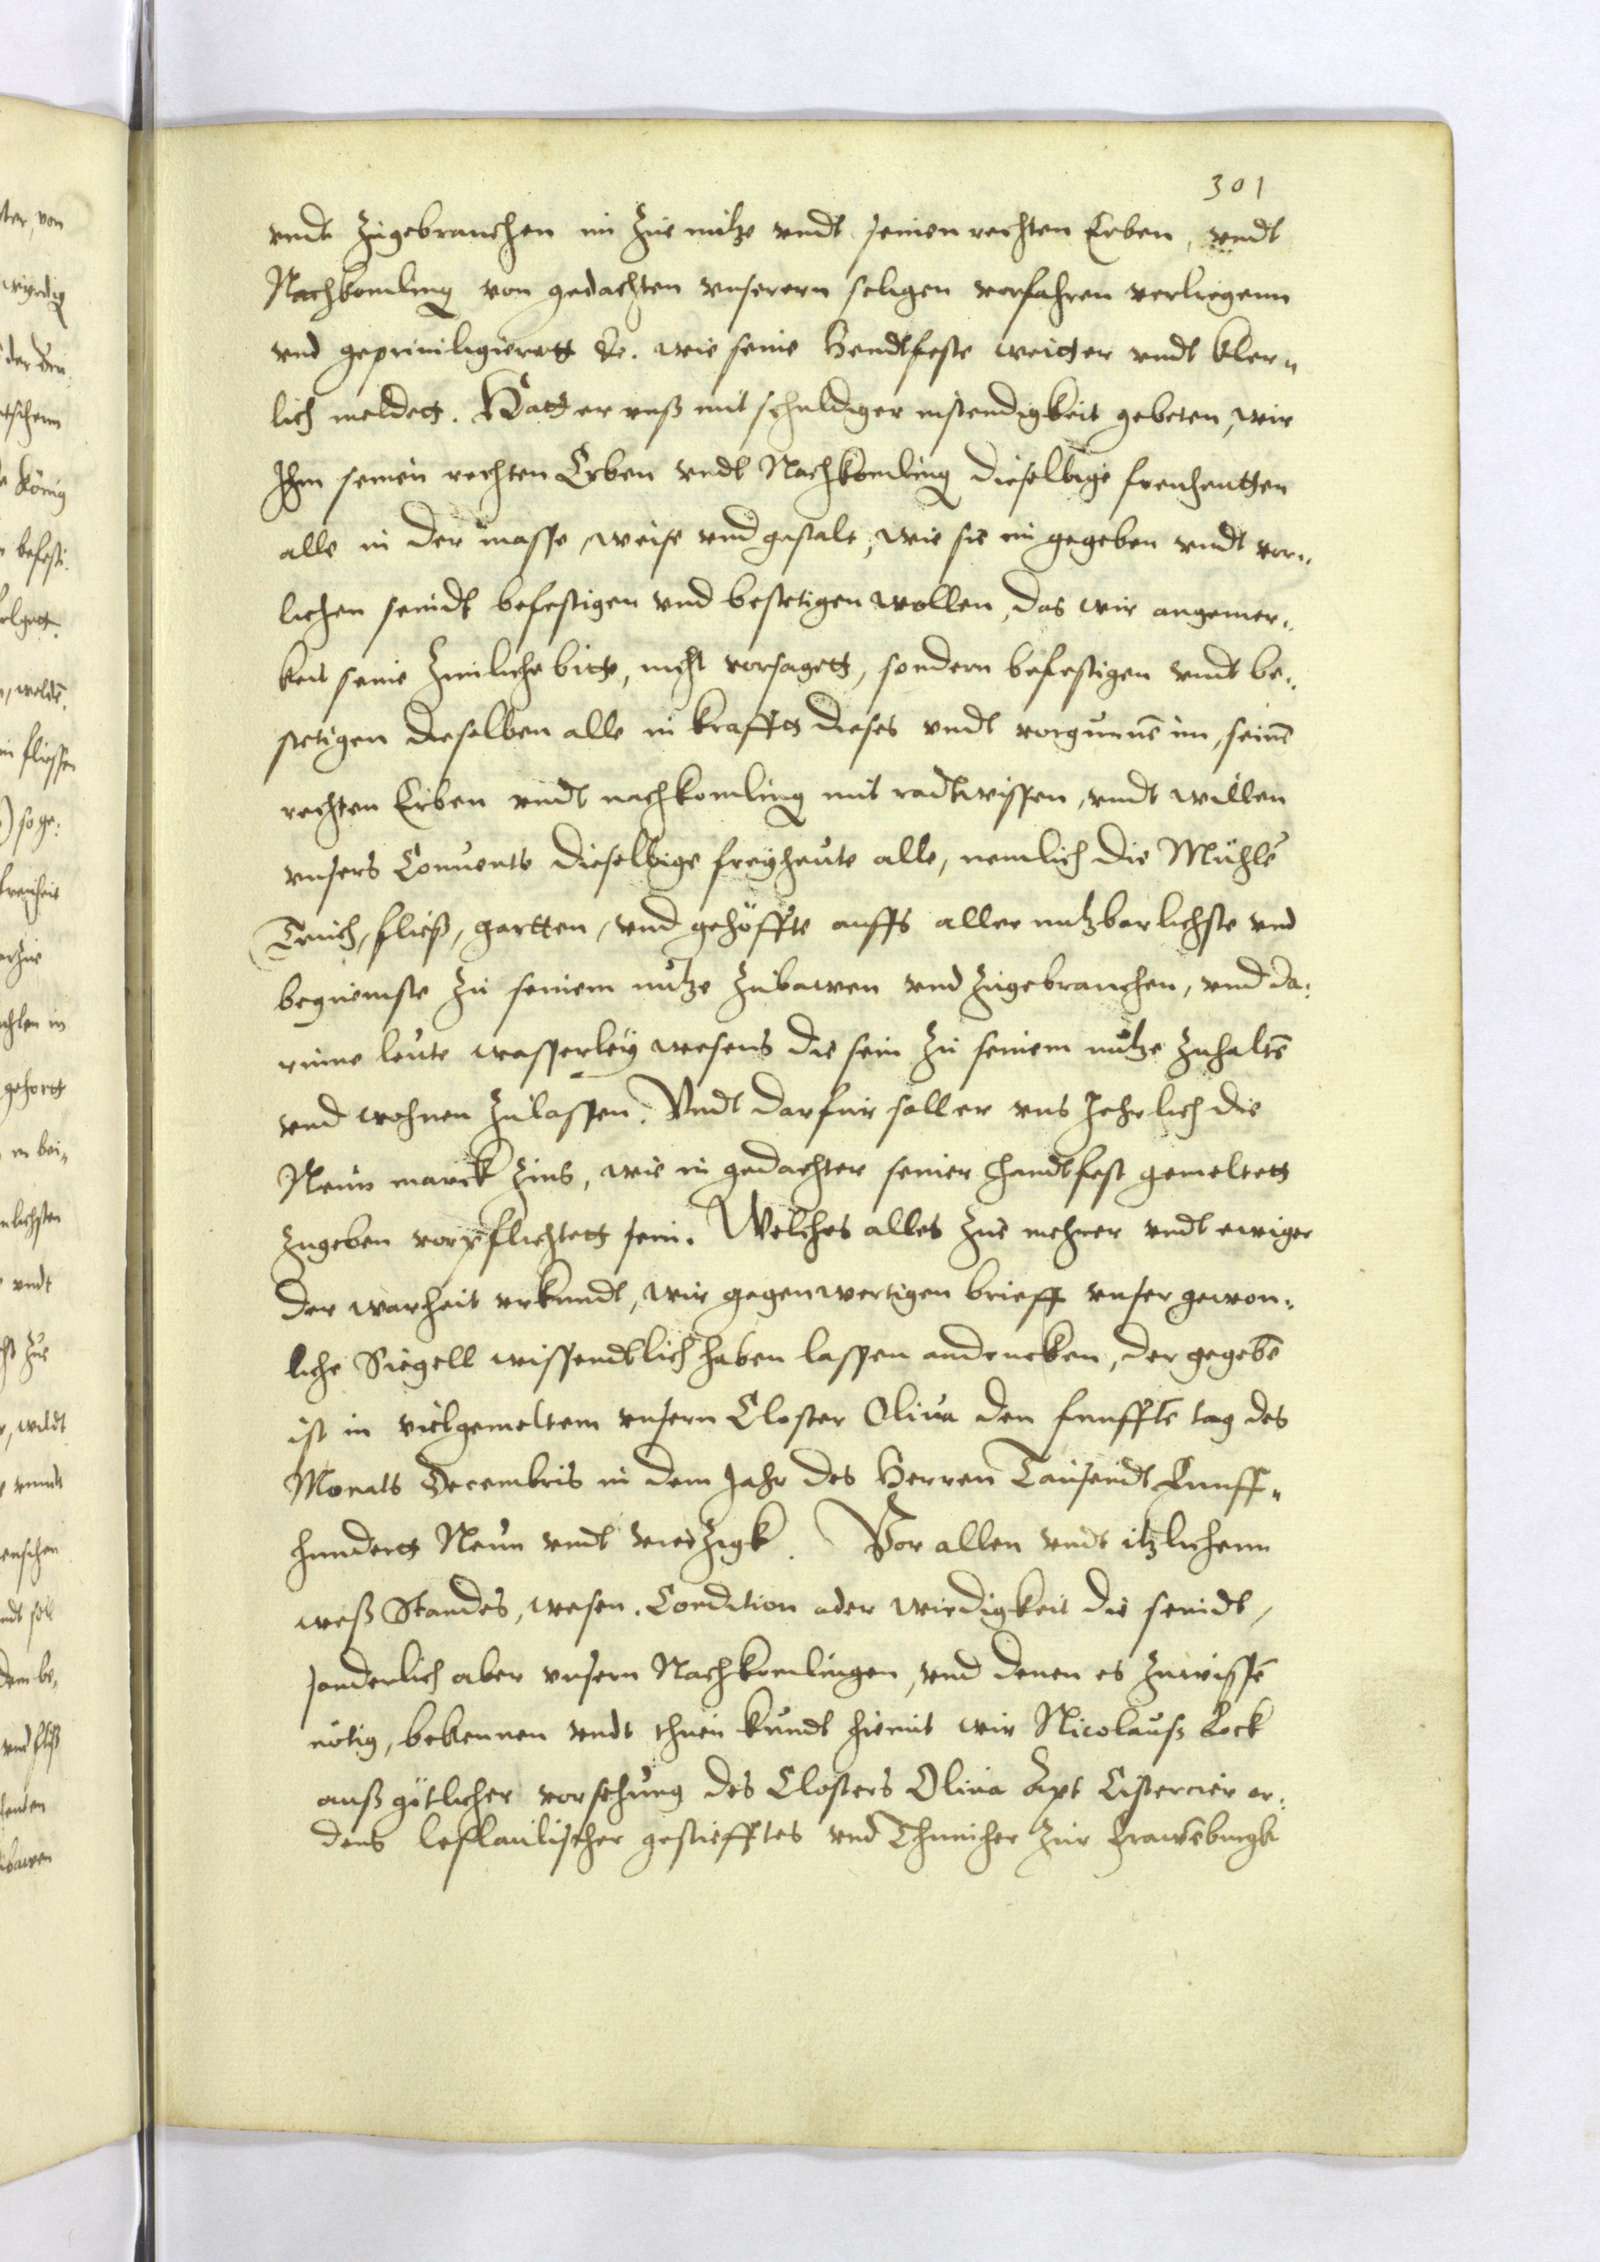 301
vndt zugebrauchen im zue nutze vndt seinen rechten Erben, vndt
Nachkomling von gedachten vnserern seligen vorfahren verliegenn
vnd gepriuiligierett &c. wie seine Handtfeste weitter vndt kler„
lich meldett. Hatt er vnß mit schuldiger instendigkeit gebeten, wir
Ihm seinen rechten Erben vndt Nachkomling dieselbige freyheutten
alle in der masse, weise vnd gestalt, wie sie im gegeben vndt vor„
lichen seindt befestigen vnd bestetigen wollen, das wir angemer„
kett seine zimliche bitte, nicht vorsagett, sondern befestigen vndt be„
stetigen dieselben alle in krafft dieses vndt vorgunnē im, seinē
rechten Erben vndt nachkomling mit radtwissen, vndt willen
vnsers Conuents dieselbige freyheute alle, nemlich die Mühle
Teuch, fließ, gartten, vnd gehöffte auffs aller nutzbarlichste vnd
bequiemste zu seinem nutze zubawen vnd zugebrauchen, vnd da„
rinne leute wasserley wesens die sein zu seinem nutze zuhaltē
vnd wohnen zulassen. Vndt darfuir soll er vns Jehrlich die
Neun marck zins, wie in gedachter seiner handtfest gemeltett
zugeben vorpflichtett sein. Welches alles zue mehrer vndt ewiger
der warheit vrkundt, wir gegenwertigen brieff vnser gewon„
liche Siegell wissendtlich haben lassen andrucken, der gegebē
ist in vielgemeltem vnsern Closter Oliua den funfftē tag des
Monats Decembris in dem Jahr des Herren Tausendt Funff„
hundertt Neun vndt vierzigk. Vor allen vndt itzlichenn
weß Standes, wesen, Condition oder wirdigkeit die seindt,
sonderlich aber vnsern Nachkomlingen, vnd denen es zuwissē
nötig, bekennen vndt thuen kundt hiemit wir Nicolauß Lock
auß götlicher vorsehung des Closters Oliua Apt Cistercier or„
dens leslauischer gestiefftes vnd Thumher zur Frawēburgk